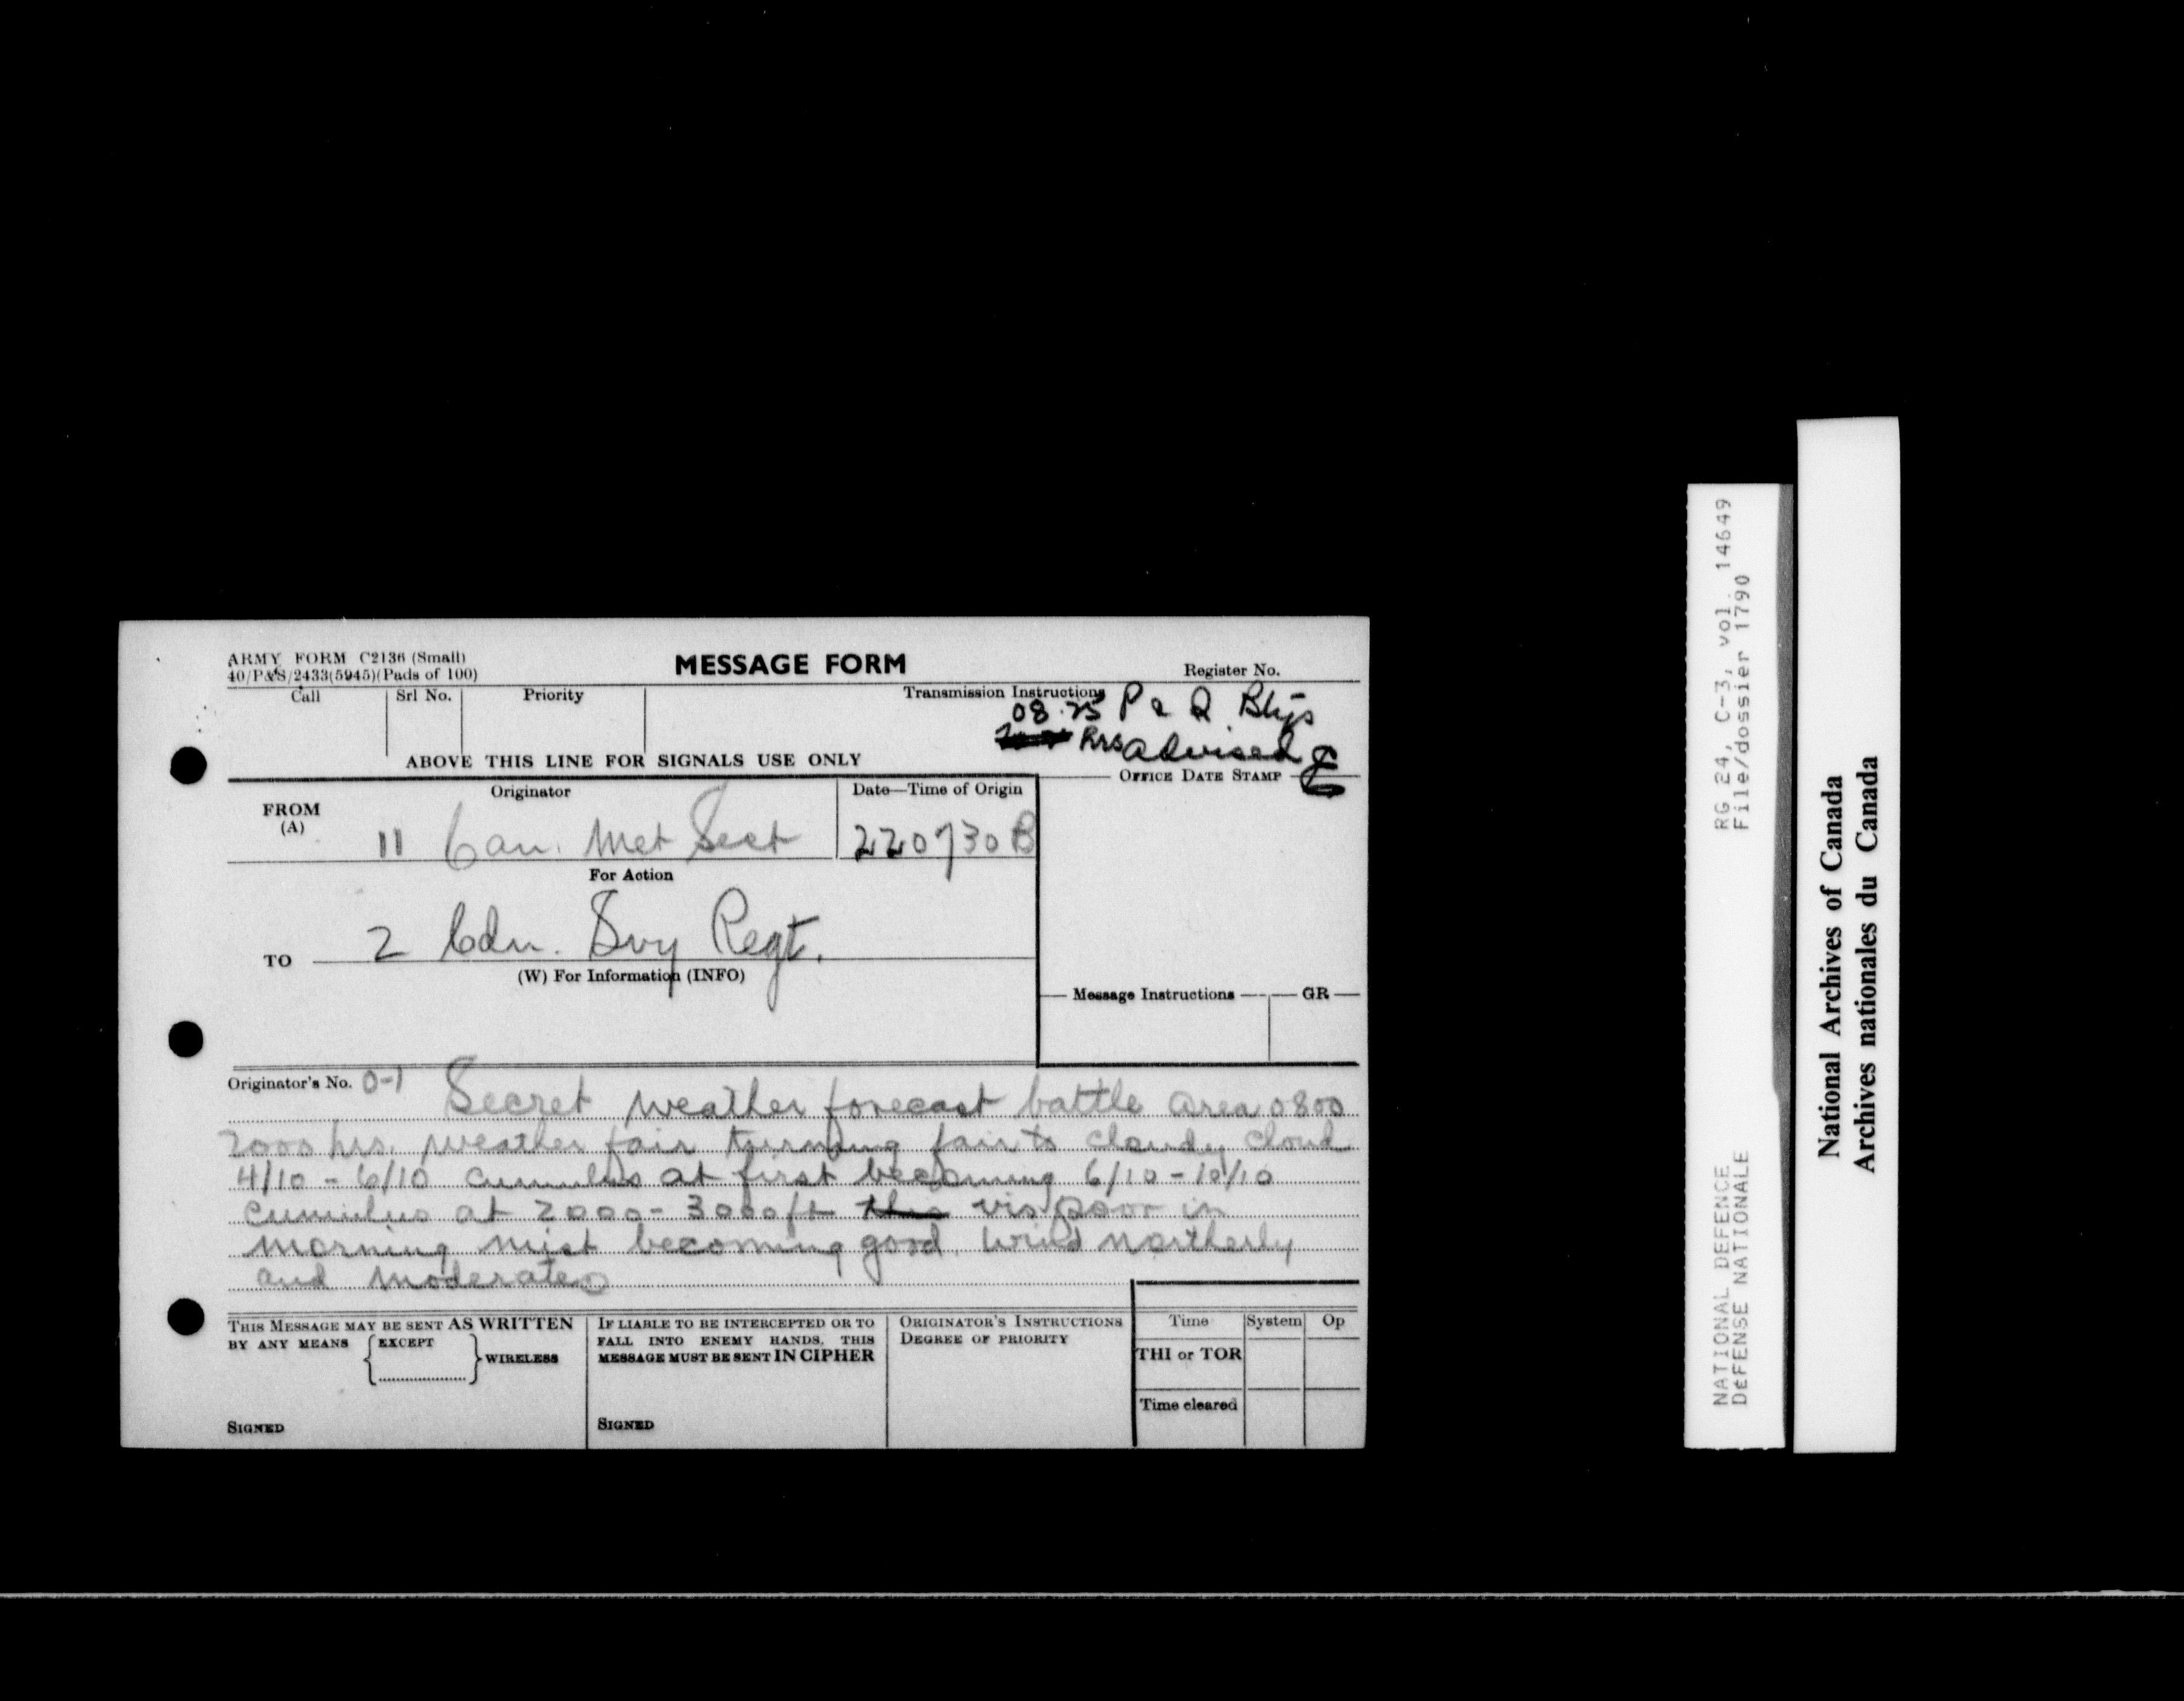 ARMY FORM C2136 (Small)
40/P&S/2433(5945)(Pads of 100)
MESSAGE FORM
Register No.
Call
Srl No.
Priority
Transmission Instructions
08.25 P & Q Btys
Advised
ABOVE THIS LINE FOR SIGNALS USE ONLY
OFFICE DATE STAMP
FROM
(A)
Originator
Date—Time of Origin
11 Can. Met Sect
220730B
For Action
TO
2 Cdn. Svy Regt.
(W) For Information (INFO)
Message Instructions
GR
Originator's No. O-1 Secret weather forecast battle area 0800
2000 hrs. weather fair turning fair to cloudy cloud
4/10 - 6/10 cumulus at first becoming 6/10 - 10/10
cumulus at 2000 - 3000 ft vis poor in
morning mist becoming good. wind northerly
and moderate
THIS MESSAGE MAY BE SENT AS WRITTEN
BY ANY MEANS
EXCEPT
WIRELESS
SIGNED
IF LIABLE TO BE INTERCEPTED OR TO
FALL INTO ENEMY HANDS, THIS
MESSAGE MUST BE SENT IN CIPHER
SIGNED
ORIGINATOR'S INSTRUCTIONS
DEGREE OF PRIORITY
Time
System
Op
THI or TOR
Time cleared
RG 24, C-3, vol. 14649
File/dossier 1790
NATIONAL DEFENCE
DEFENSE NATIONALE
National Archives of Canada
Archives nationales du Canada